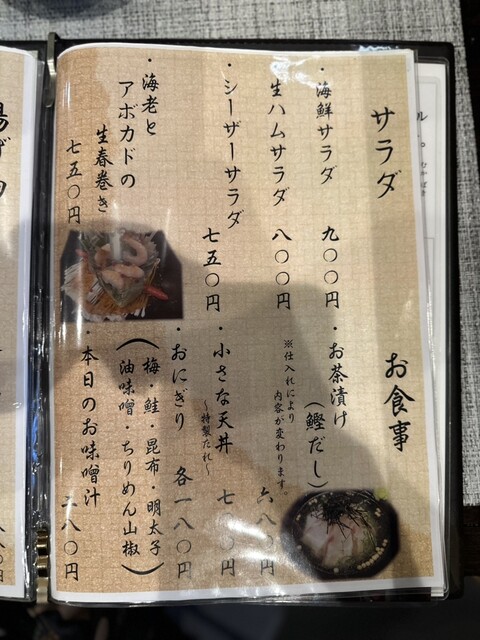 サラダ
・海鮮サラダ 九〇〇円
生ハムサラダ 八〇〇円
・シーザーサラダ 七五〇円
・海老と
アボカドの
生春巻き
七五〇円
お食事
・お茶漬け
(鰹だし)
※仕入れにより
内容が変わります。
六八〇円
・小さな天丼
〜特製だれ〜
・おにぎり 各一八〇円
(梅・鮭・昆布・明太子
油味噌・ちりめん山椒)
・本日のお味噌汁
三八〇円